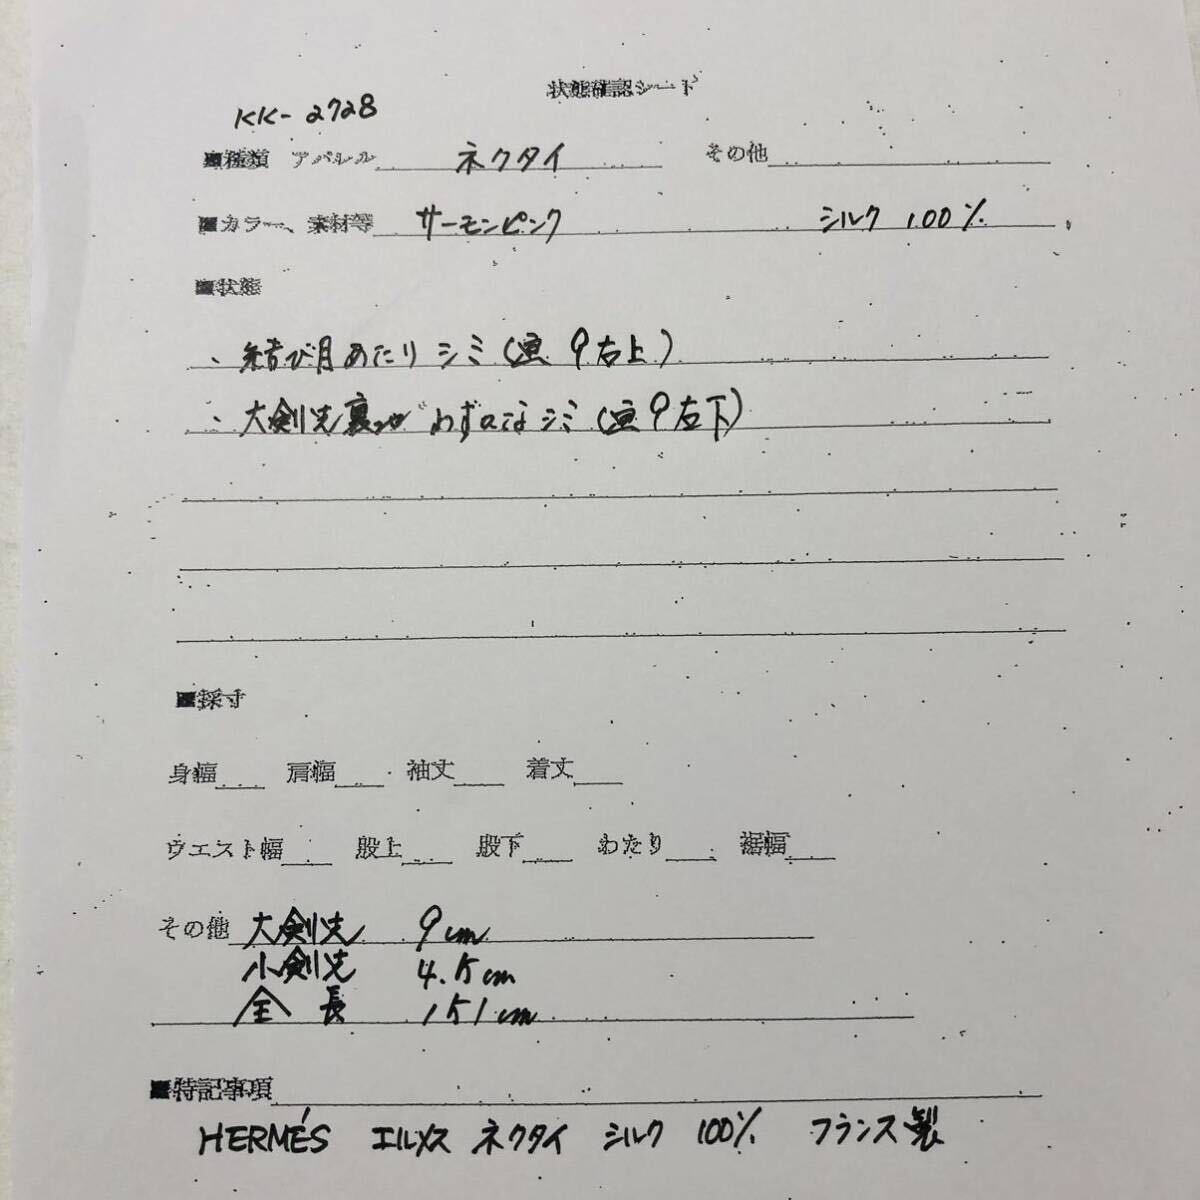 状態確認シート
KK-2728
■種類 アパレル ネクタイ その他
■カラー、素材等 サーモンピンク シルク 100%
■状態
、結び目あたりシミ(画9右上)
、大剣先裏わずかなシミ(画9左下)
■採寸
身幅 肩幅 袖丈 着丈
ウエスト幅 股上 股下 わたり 裾幅
その他 大剣先 9cm
小剣先 4.5cm
全長 151cm
■特記事項
HERMÉS エルメス ネクタイ シルク 100% フランス製